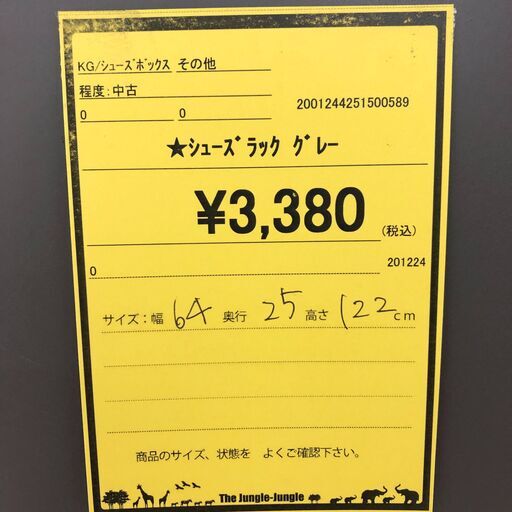 KG/ｼｭｰｽﾞﾎﾞｯｸｽ その他
程度:中古
0 0 2001244251500589
★ｼｭｰｽﾞﾗｯｸ ｸﾞﾚｰ
¥3,380 (税込)
0 201224
サイズ:幅 64 奥行 25 高さ 122 cm
商品のサイズ、状態を よくご確認下さい。
The Jungle-Jungle